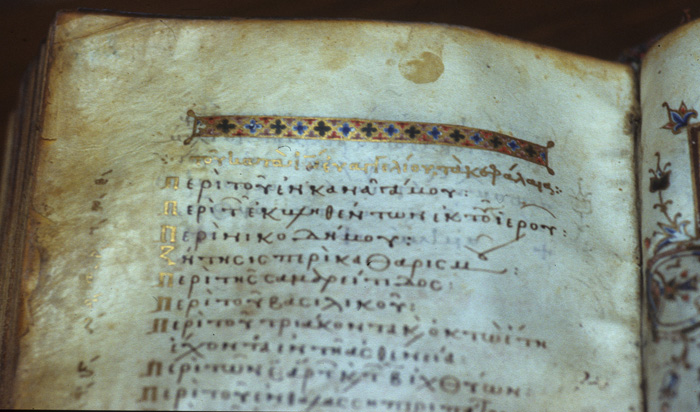 εὐαγγελίου τὰ κεφάλαια:
Περὶ τοῦ ἐν Κανᾶ γάμου:
Περὶ τ ἐκβληθέντων ἐκ τοῦ ἱεροῦ:
Περὶ Νικοδήμου
Ζήτησις περὶ καθαρισμοῦ:
Περὶ τῆς Σαμαρείτιδος:
Περὶ τοῦ βασιλικοῦ:
Περὶ τοῦ τριάκοντα κ ὀκτὼ ἔτη
ἔχοντα ἐν τῆ ἀσθενεία:
Περὶ τῶν ε ἄρτ κ τ β ἰχθύων:
Περὶ τοῦ ἐν θαλάσση